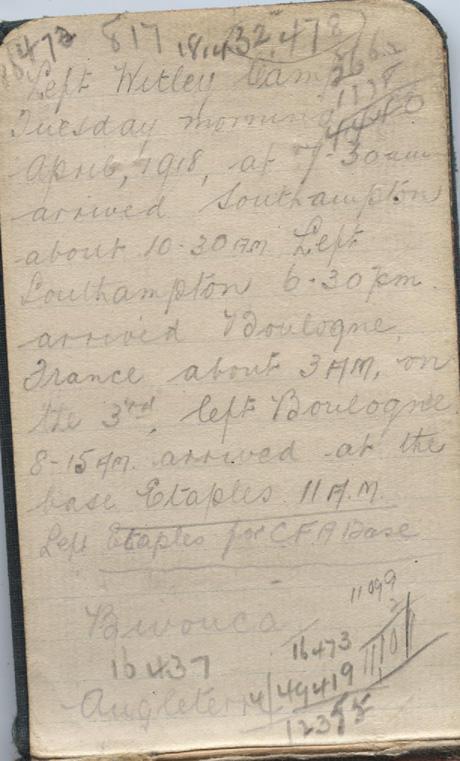 16473 817 1814 32,478
Left Witley Cam
Tuesday morning
April, 1918, at 7-30am
arrived Southampton
about 10-30 AM, Left
Southampton 6-30 pm.
arrived Boulogne,
France about 3 AM, on
the 3rd, left Boulogne
8-15 AM. arrived at the
base Etaples 11 A.M.
Left Etaples for C.F.A Base
11099
2
Bivouca
16473
16437
49419
Angleterr
12355